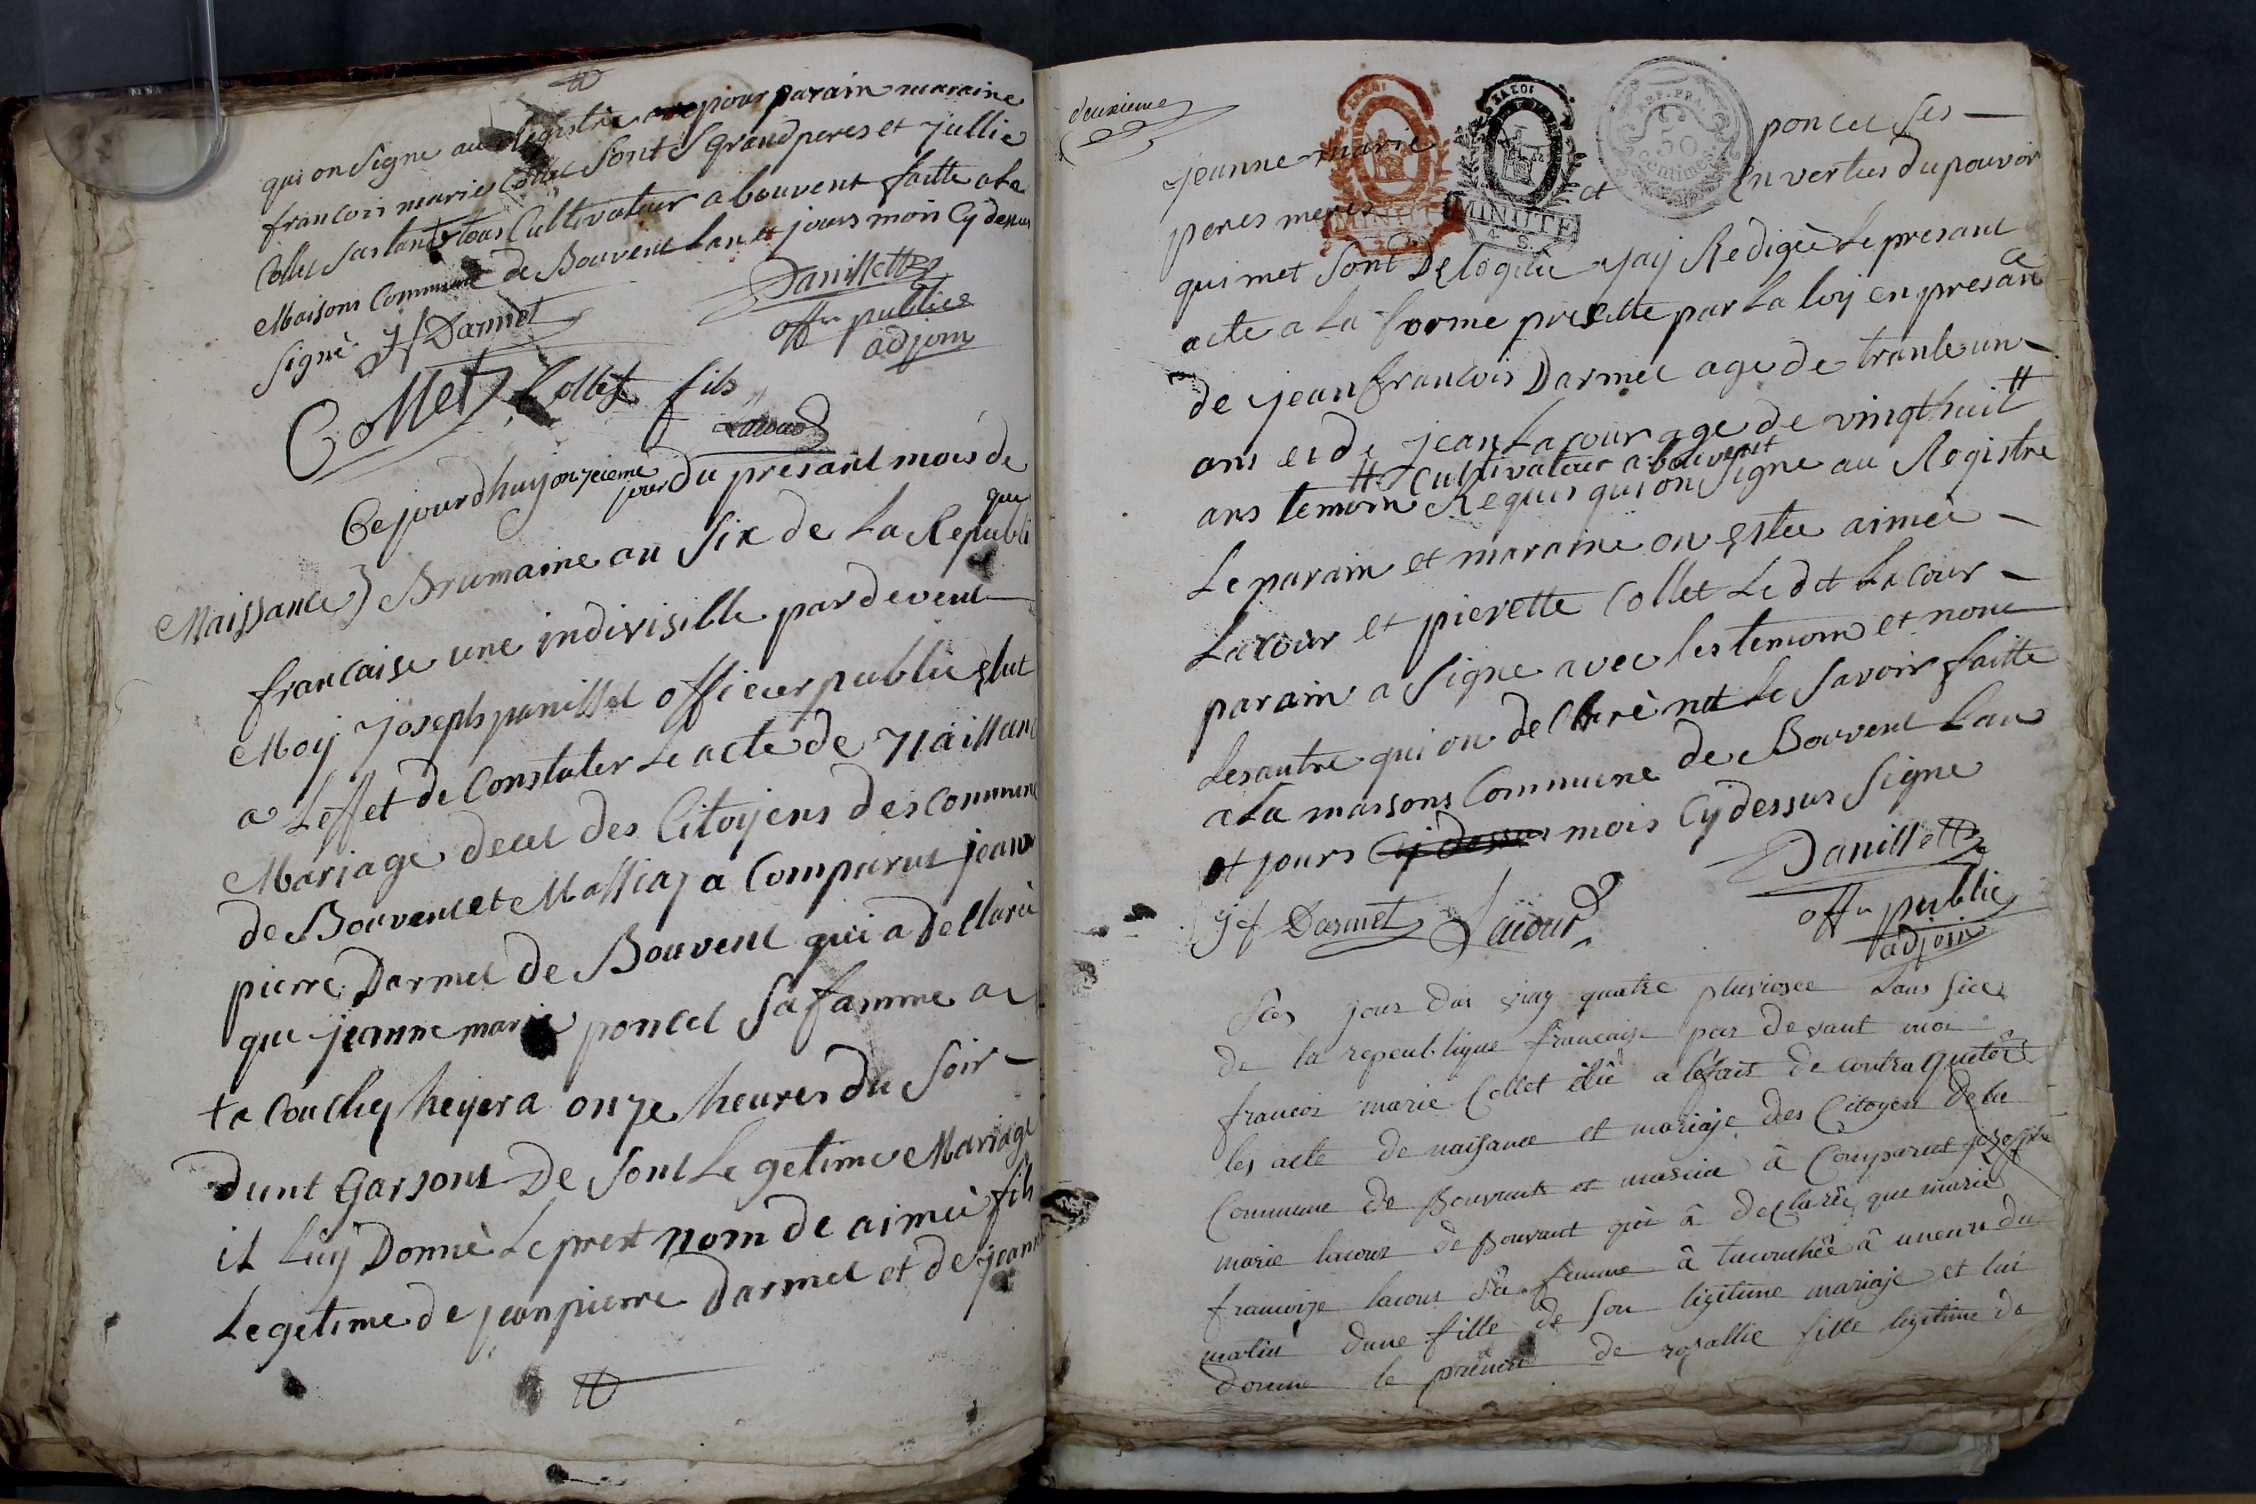 qui on Signe au Registre pour parain maraine
francois marie Collet Sont S grand peres et Jullie
Collet Sartante tous Cultivateur a bouvent faitte a La
Maisons Commune de Bouvent Lan et jours mois Cy dessus
Signè J f Darmet Panillett
offer publice
adjoin
Collet Collet fils
Lacour
Ce jourdhuy onzieme jour du presant mois de
Naissance} Brumaine an Six de La Republique
francaise une indivisible pardevent
Moy Joseph panillet officier public Elut
a Leffet de Constater Le acte de Naissanc
Mariage decet des Citoyens des commune
de Bouvent et Massiaz a Comparut jean
pierre Darmet de Bouvent qui a Dellarè
que jeanne marie poncet Sa famme a
ta Couchy heyer a onze heures du Soir
dunt Garsont De Sont Legetime Mariage
il Luy Donnè Le prent nom de aimèe fils
Legetime de jean pierre Darmet et de jeanne
deuxieme
jeanne marie poncet Ses
peres meres et En vertus du pouvoir
qui met Sont Delogùe Jay Redigèe Le presant
acte a La forme prescitte par La loy en presance
de jean francois Darmet age de trante un
ans et de jean Lacour age de vingthuit #
# Cultivateur a bouvent
ans temoin Requis qui on Signe au Registre
Le parain et maraine on Estee aimèe
Lacour et pierette Collet Le dit Lacour
parain a Signe avec les temoin et nom
Les autre qui on dellarè ne Le Savoir faitte
a La maisons Commune de Bouvent Lan
et jours Cy dessus mois Cy dessus Signe
Panillett
J f Darmet Lacour offer public
adjoin
Ses jour das ving quatre pluviosee Lans sice
de la repeublique francaise par devant moi
francois marie Collet êlu a lefait de contra quetêr
les acte de naisance et mariaje des Citoyen de la
Commune de Bouvant et masia â Comparut jozeffe
marie lacour de Bouvant qùi â declarêe que marie
francoize lacour sâ femme â tacouchêe â uneure du
matin dune fille de son ligitime mariaje et lui
donne le prênon de rosallie fille ligitime de